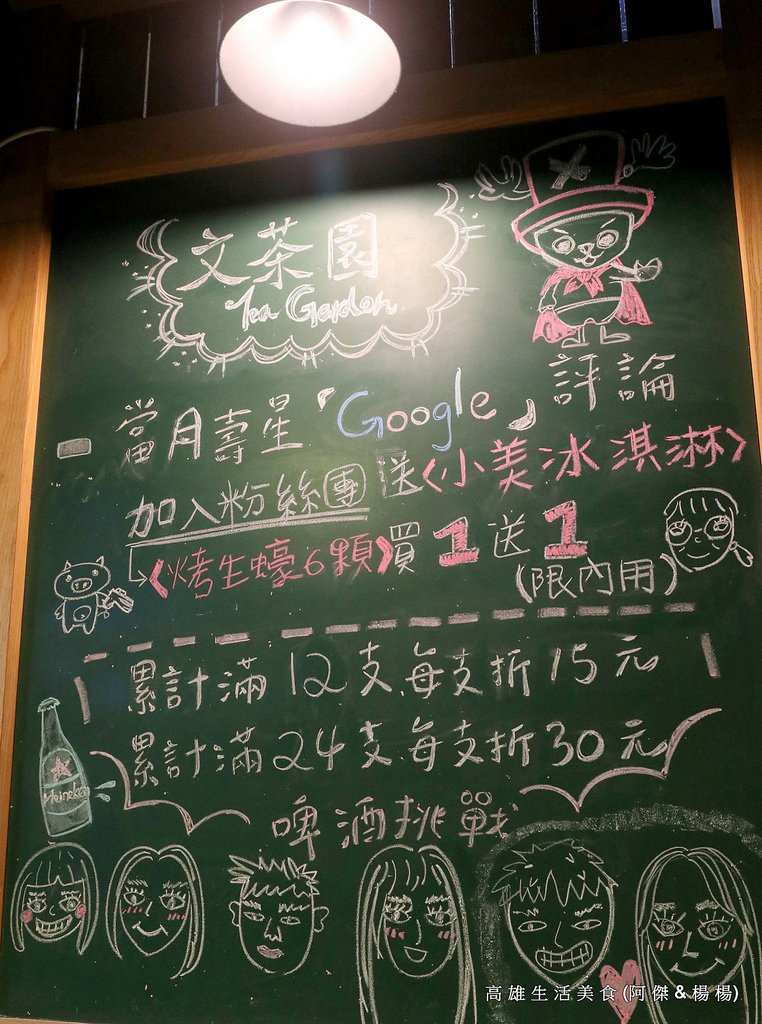 文茶園
Tea Garden
當月壽星「Google」評論
加入粉絲團送<小美冰淇淋>
<烤生蠔6顆>買1送1
(限內用)
累計滿12支每支折15元
累計滿24支每支折30元
Heineken
啤酒挑戰
高雄生活美食(阿傑&楊楊)